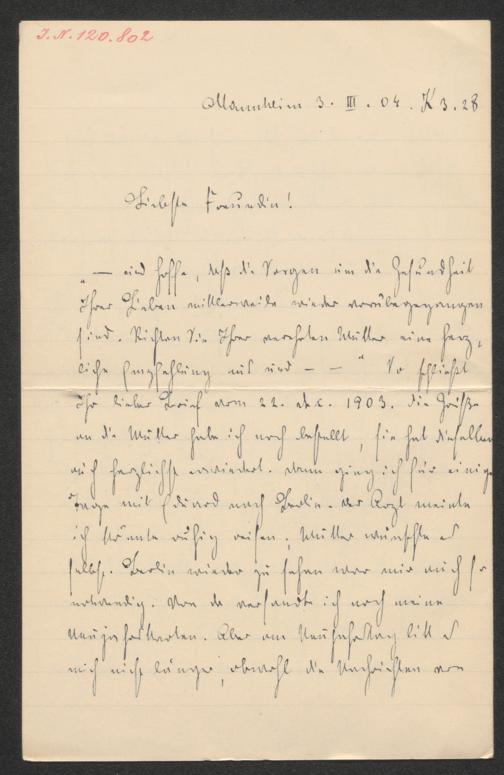 J.N. 120.802
Mannheim 3. III. 04. K 3. 28
Liebste Freundin!
"— und hoffe, daß die Sorgen um die Gesundheit
Ihrer Lieben mittlerweile wieder vorübergegangen
sind. Richten Sie Ihrer verehrten Mutter eine herz-
liche Empfehlung aus und — — " So schließt
Ihr lieber Brief vom 22. Dec. 1903. Die Grüße
an die Mutter habe ich noch bestellt, sie hat dieselben
auch herzlichst erwiedert. Dann ging ich für einige
Tage mit Eduard nach Berlin. Der Arzt meinte
ich könnte ruhig reisen, Mutter wünschte es
selbst. Berlin wieder zu sehen war mir auch so
notwendig. Von da versandte ich noch meine
Neujahrskarten. Aber am Neujahrstag litt es
mich nicht länger, obwohl die Nachrichten von